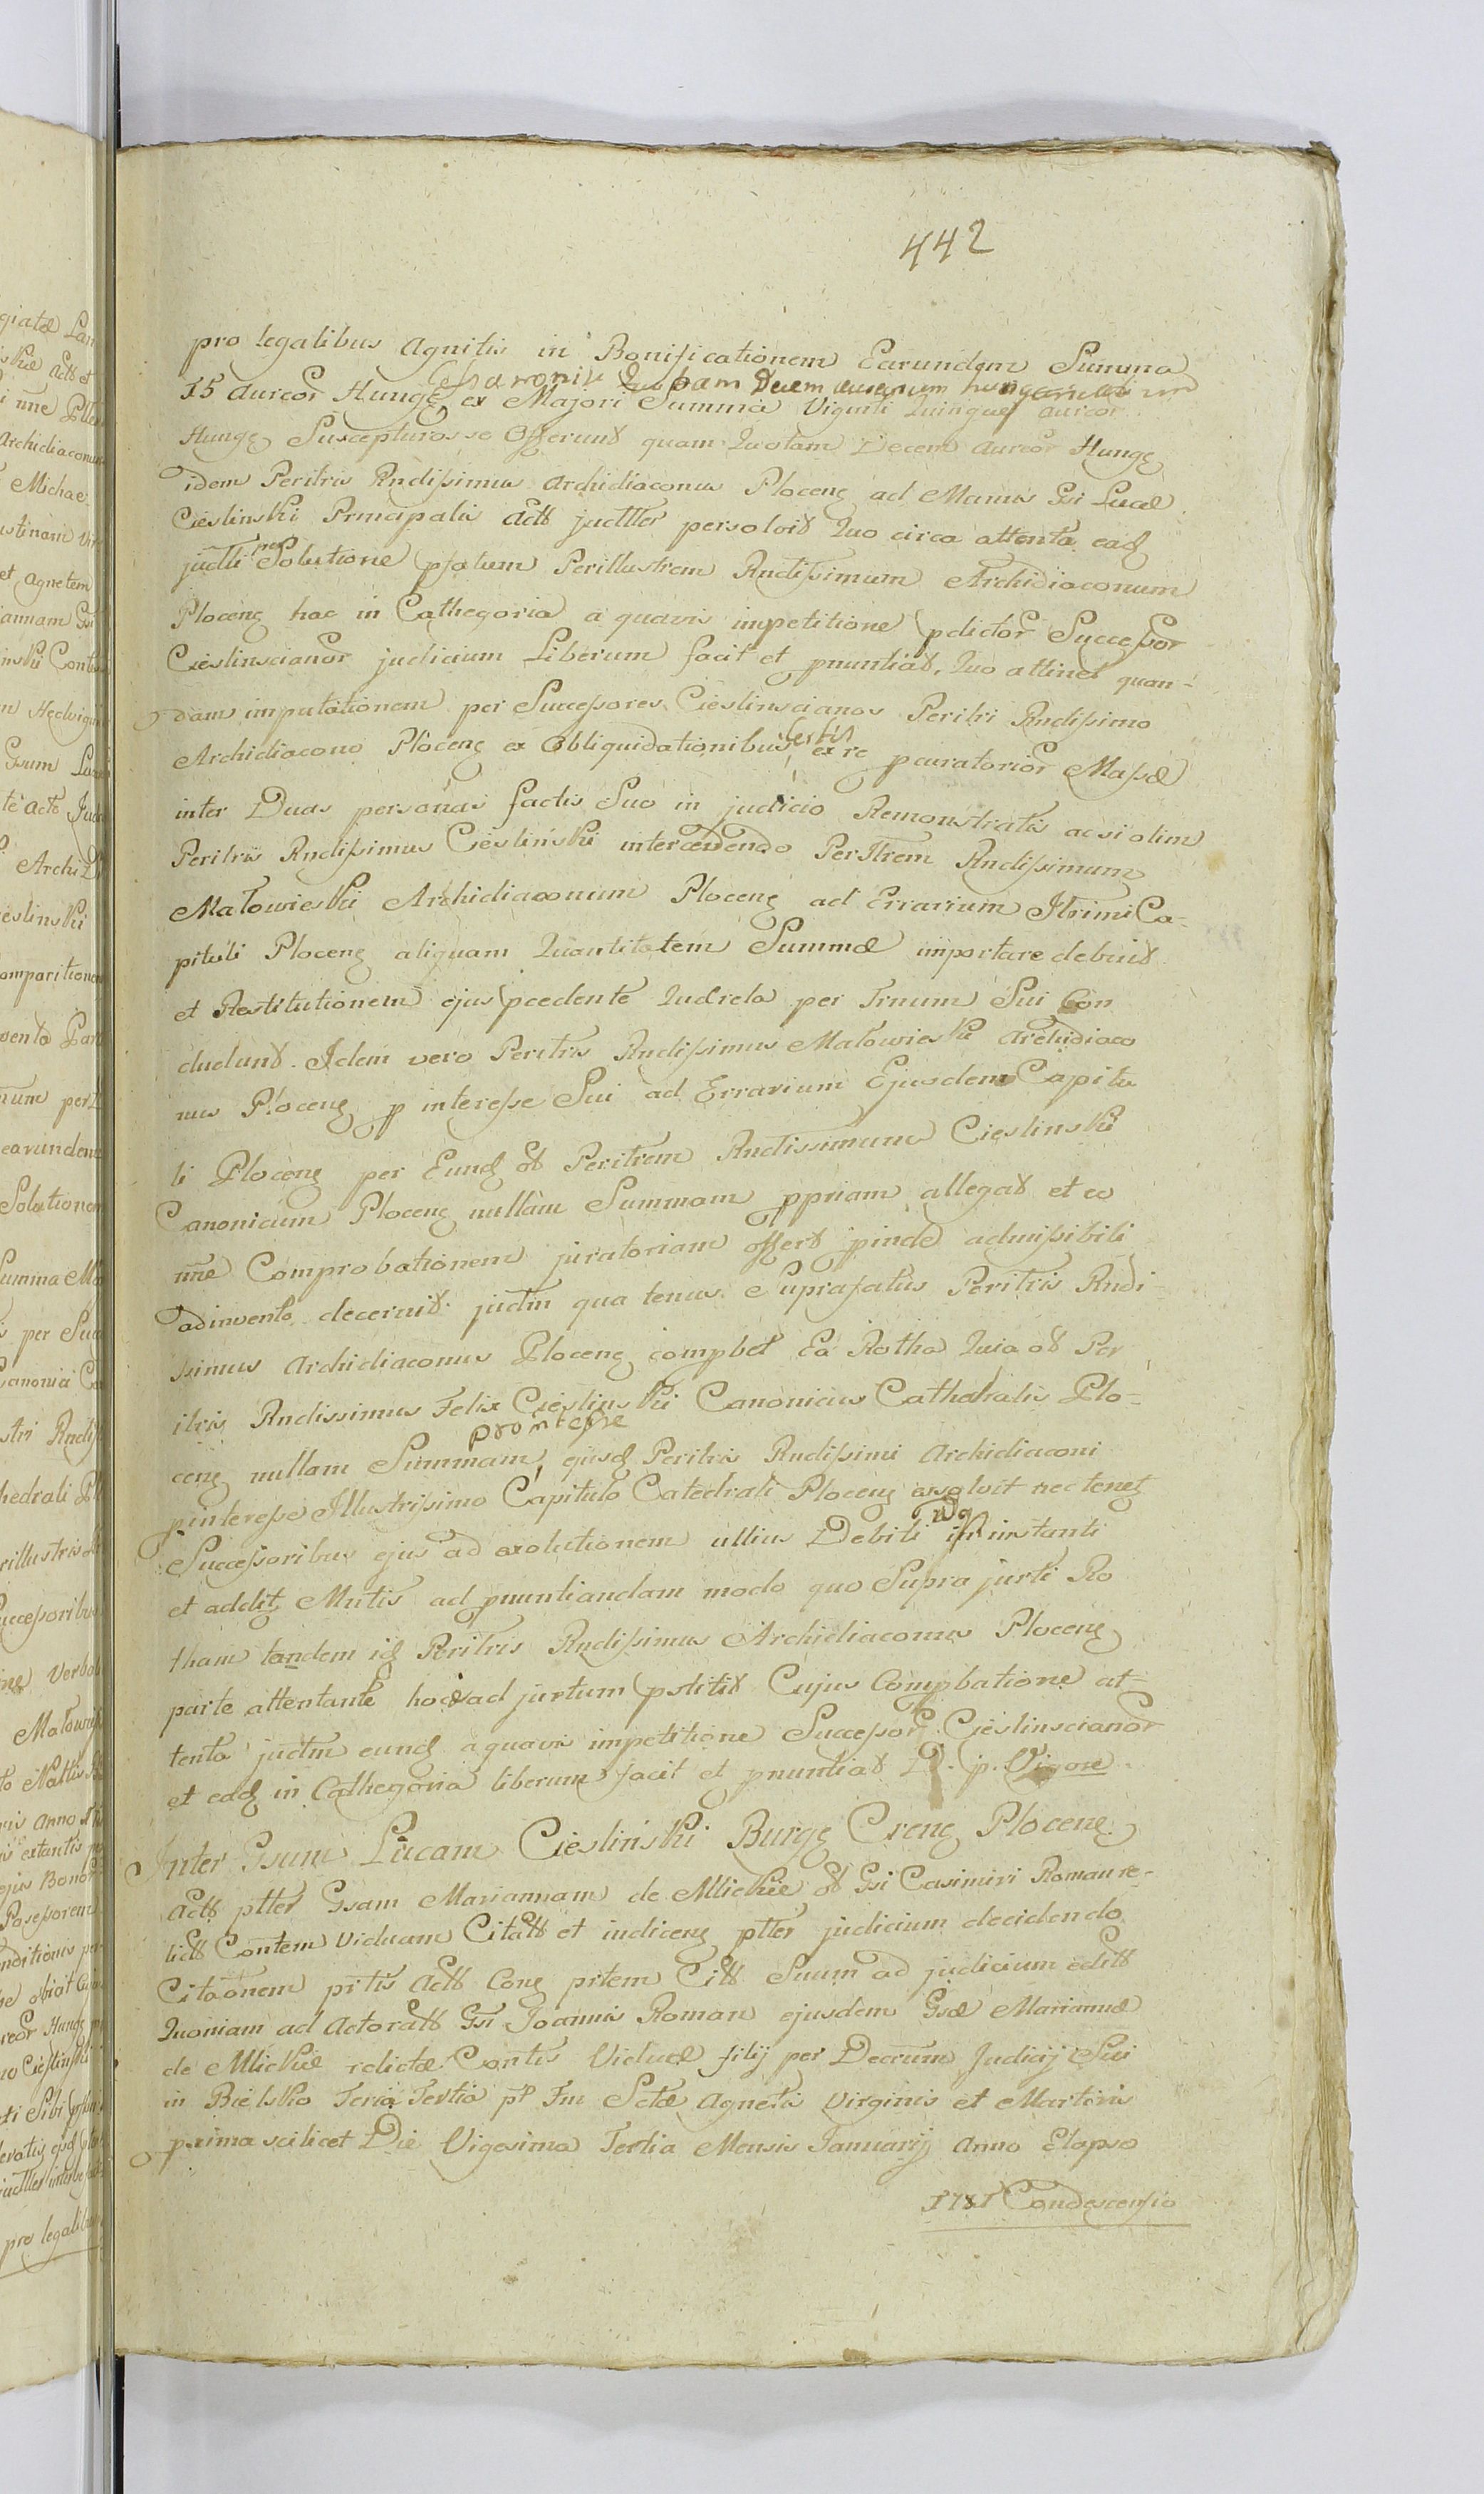 442
pro legalibus agnitis in Bonificationem Earundem Summa
quotam Decem aureorum
15 aureor Hungg ex Majori Summa Viginti Quinque aureor
Hungg Suscepturos se Offerunt quam Quotam Decem aureor Hungg
idem Perilris Rndissimus Archidiaconus Ploceng ad Manus Gsi Lucæ
Cieslinski Principalis Actt judtter persolvit Quo circa attenta eadg
judtli Solutione pfatum Perillustrem Rndissimum Archidiaconum
Ploceng hac in Cathegoria a quavis impetitione pdictor Successor
Cieslinscianor judicium Liberum facit et pnuntiat, Quo attinet quan-
dam imputationem per Successores Cieslinscianos Perilri Rndissimo
Archidiacono Ploceng ex Obliquidationibus, ex re pcuratorior Massæ
inter Duas personas factis Suo in judicio Remonstratis ac si olim
Perilris Rndissimus Cieslinski intercedendo Perltrem Rndissimum
Matowieski Archidiaconum Ploceng ad Errarium Iltrimi Ca-
pituli Ploceng aliquam Quantitatem Summæ importare debuit
et Restitutionem ejus pcedente Querela per Trnum Sui Con
cludunt. Idem vero Perilris Rndissimus Matowieski Archidiaco
nus Ploceng p interesse Sui ad Errarium Ejusdem Capitu
li Ploceng per Eundg ot Perilrem Rndissimum Cieslinski
Canonicum Ploceng nullam Summam ppriam allegat et eo
nne Comprobationem juratoriam offert pinde admissibili
adinvento decernit judtm qua tenus Suprafatus Perilris Rndi-
ssimus Archidiaconus Ploceng compbet Ea Rotha Quia ot Per
ilris Rndissimus Felix Cieslinski Canonicus Cathedralis Plo-
pro interesse
ceng nullam Summam, ejusdg Perilris Rndissimi Archidiaconi
pinteresse Illustrissimo Capitulo Catedrali Ploceng exolvit nec tenetg
Successoribus ejus ad exolutionem ullius Debiti in instanti
et additg Mntis ad pnuntiandam modo quo Supra jurti Ro
tham tandem idg Perilris Rndissimus Archidiaconus Ploceng
parte attentante hocce ad jurtum pstitit Cujus Compbatione at-
tenta judtm eundg a quavis impetitione Successor Cieslinscianor
et eadg in Cathegoria liberum facit et pnuntiat D. p. Vigore
Inter Gsum Lucam Cieslinski Burgg Creng Ploceng
Actt ptter Gsam Mariannam de Mlickie ot Gsi Casimiri Roman re-
lictt Contem Viduam Citatt et indiceng ptter judicium decidendo
Citaonem pntis Actt Cong pitem Citt Suum ad judicium editt
Quoniam ad Actoratt Gsi Joannis Roman ejusdem Gsæ Mariannæ
de Mlickie relictæ Contis Viduæ filij per Decrum Judicij Sui
in Bielsko Feria Tertia pt Fm Sctæ Agnetis Virginis et Martiris
prima scilicet Die Vigesima Tertia Mensis Januarij Anno Elapso
1781 Condescensio